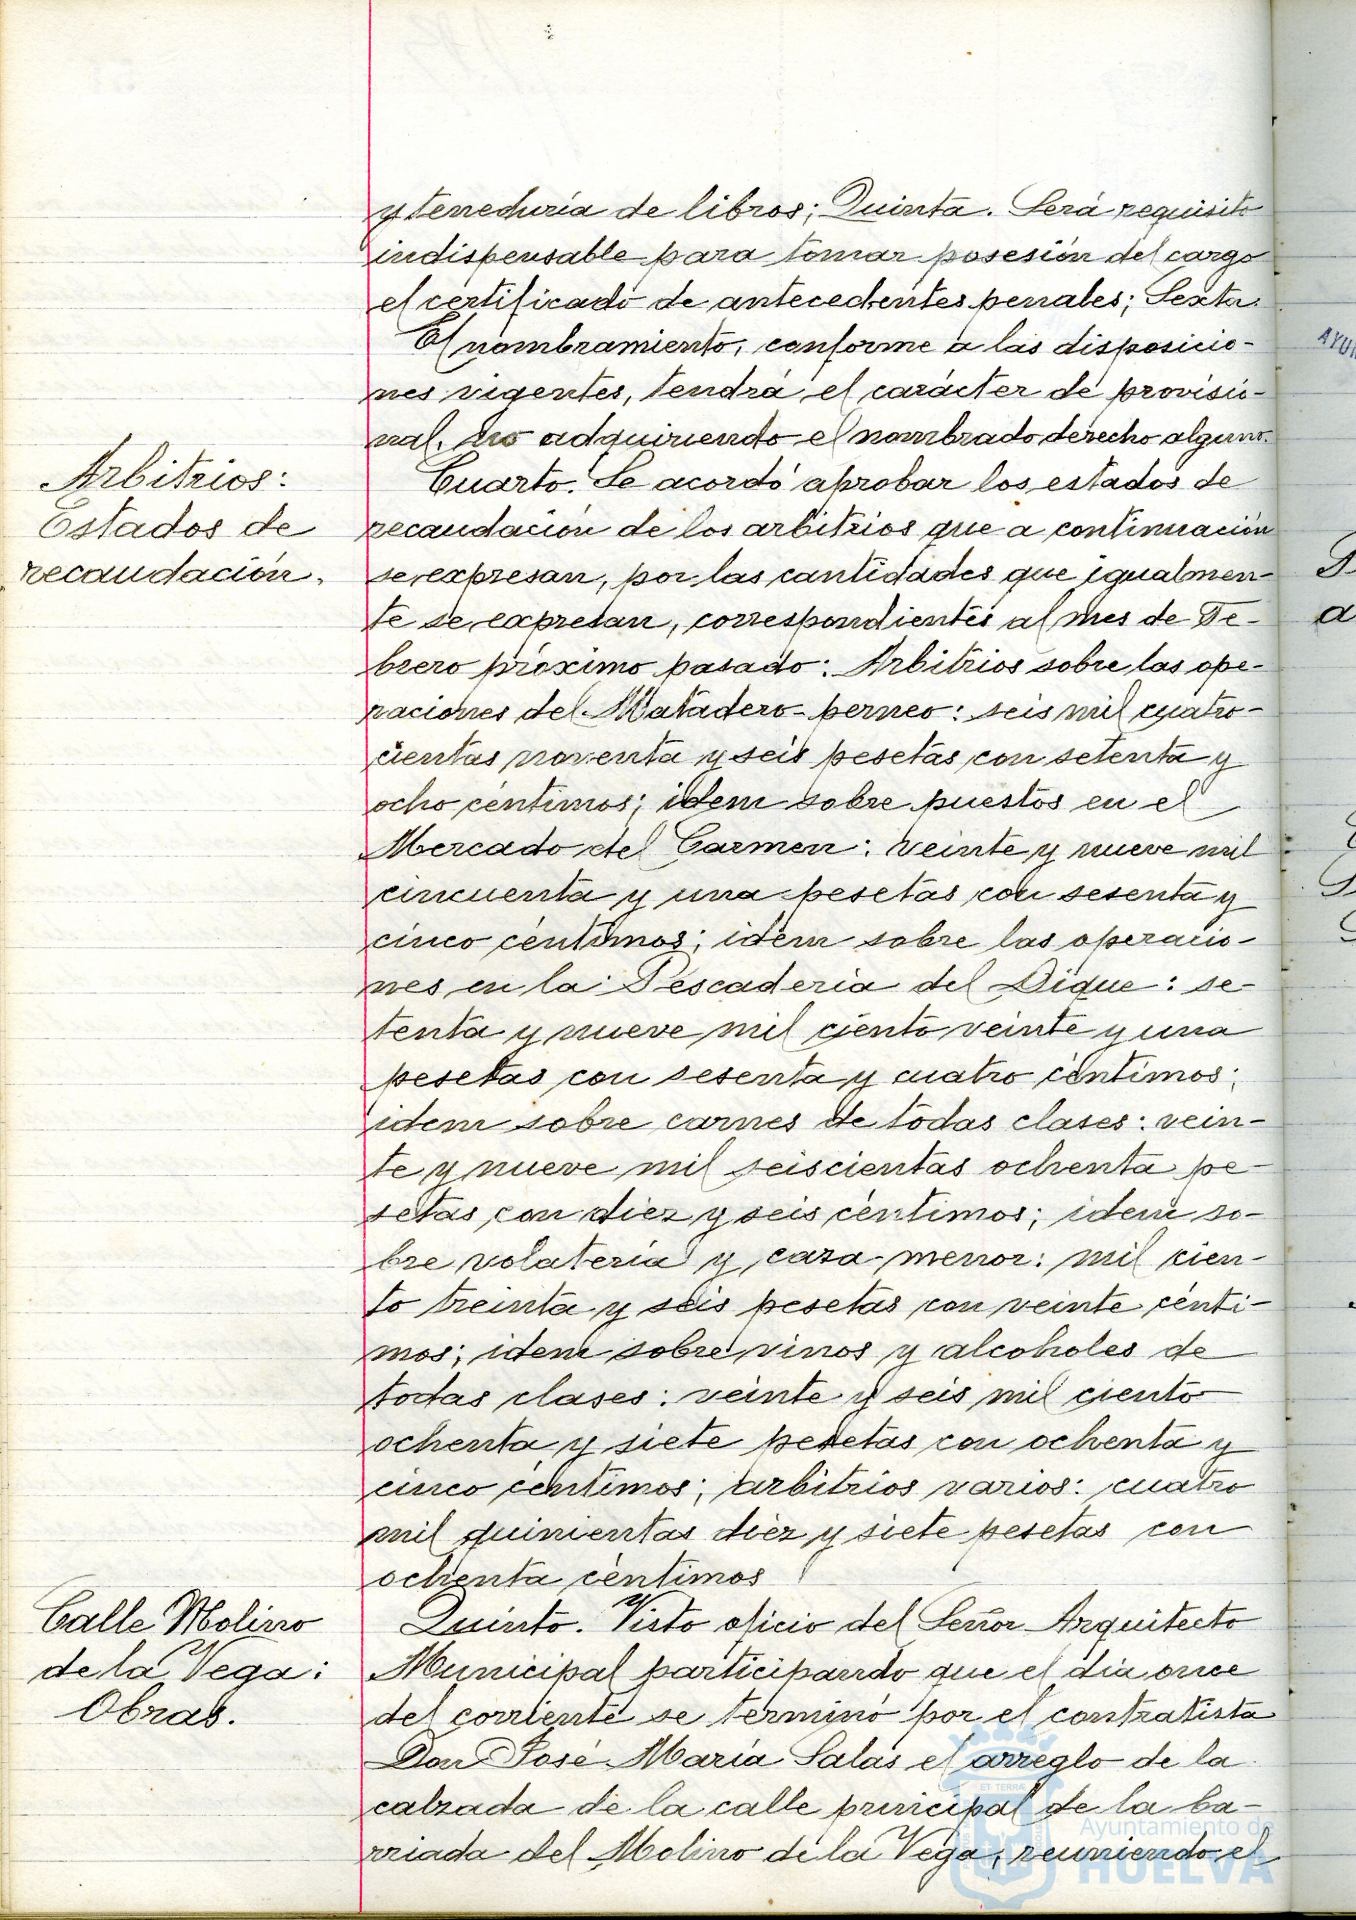 y teneduría de libros; Quinta. Será requisito
indispensable para tomar posesión del cargo
el certificado de antecedentes penales; Sexta.
El nombramiento, conforme a las disposicio-
nes vigentes, tendrá el carácter de provisio-
nal, no adquiriendo el nombrado derecho alguno.
Arbitrios:
Estados de
recaudación.
Cuarto. Se acordó aprobar los estados de
recaudación de los arbitrios que a continuación
se expresan, por las cantidades que igualmen-
te se expresan, correspondientes al mes de Fe-
brero próximo pasado: Arbitrios sobre las ope-
raciones del Matadero-perneo: seis mil cuatro-
cientas noventa y seis pesetas con setenta y
ocho céntimos; idem sobre puestos en el
Mercado del Carmen: veinte y nueve mil
cincuenta y una pesetas con sesenta y
cinco céntimos; idem sobre las operacio-
nes en la Pescadería del Dique: se-
tenta y nueve mil ciento veinte y una
pesetas con sesenta y cuatro céntimos;
idem sobre carnes de todas clases: vein-
te y nueve mil seiscientas ochenta pe-
setas con diez y seis céntimos; idem so-
bre volatería y caza menor: mil cien-
to treinta y seis pesetas con veinte cénti-
mos; idem sobre vinos y alcoholes de
todas clases: veinte y seis mil ciento
ochenta y siete pesetas con ochenta y
cinco céntimos; arbitrios varios: cuatro
mil quinientas diez y siete pesetas con
ochenta céntimos
Calle Molino
de la Vega:
Obras.
Quinto. Visto oficio del Señor Arquitecto
Municipal participando que el día once
del corriente se terminó por el contratista
Don José María Salas el arreglo de la
calzada de la calle principal de la ba-
rriada del Molino de la Vega, reuniendo el
Ayuntamiento de
HUELVA